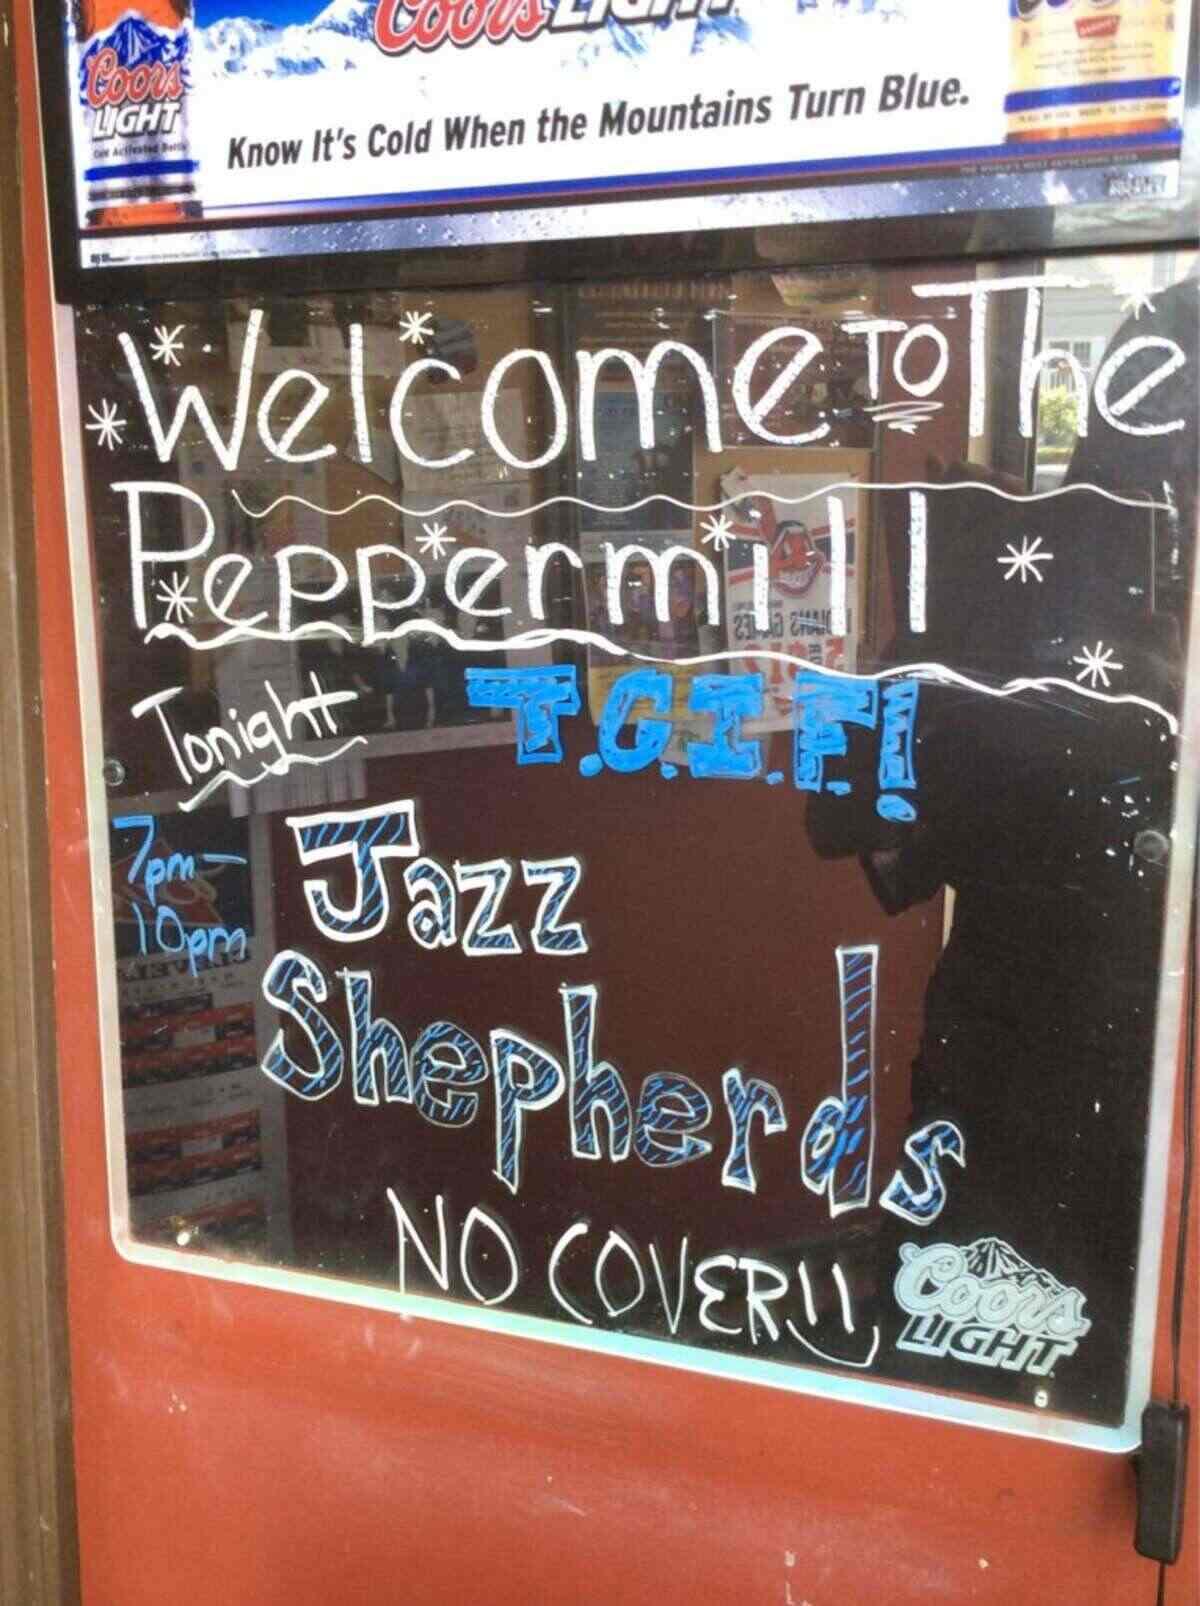 Coors LIGHT
Coors
LIGHT
Know It's Cold When the Mountains Turn Blue.
Welcome To The
Peppermill
Tonight T.G.I.F!
7pm-
10pm
Jazz
Shepherds
NO COVER!!
Coors
LIGHT